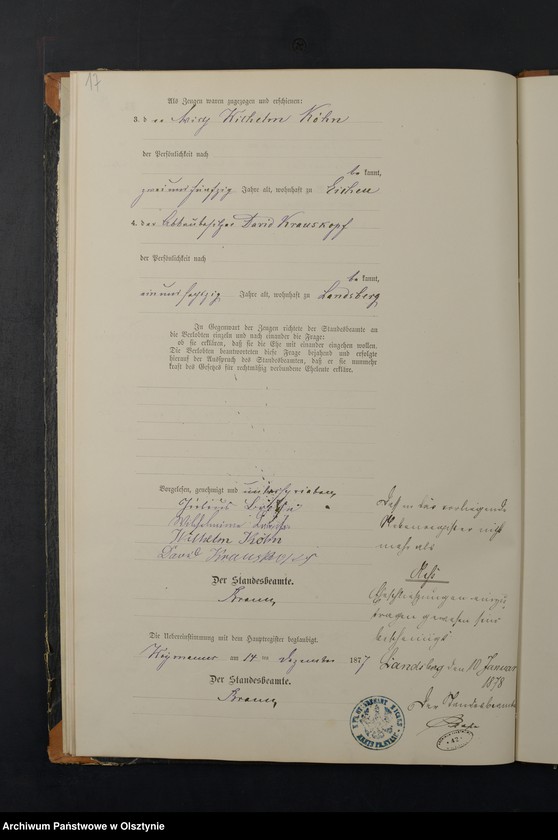 17
Als Zeugen waren zugezogen und erschienen:
3. der Wilhelm Köhn
der Persönlichkeit nach
bekannt,
zweiundfünfzig Jahre alt, wohnhaft zu Eichen
4. der David Krauskopf
der Persönlichkeit nach
bekannt,
einundsechzig Jahre alt, wohnhaft zu Landsberg
In Gegenwart der Zeugen richtete der Standesbeamte an
die Verlobten einzeln und nach einander die Frage:
ob sie erklären, daß sie die Ehe mit einander eingehen wollen.
Die Verlobten beantworteten diese Frage bejahend und erfolgte
hierauf der Ausspruch des Standesbeamten, daß er sie nunmehr
kraft des Gesetzes für rechtmäßig verbundene Eheleute erkläre.
Vorgelesen, genehmigt und unterschrieben
Wilhelmine
Wilhelm Köhn
David Krauskopf
Der Standesbeamte.
Die Uebereinstimmung mit dem Hauptregister beglaubigt.
am 14 ten Dezember 1877
Der Standesbeamte.
Daß in das vorliegende
Nebenregister nicht
mehr als
Eheschließungen einzu-
tragen gewesen sind
bescheinigt
Landsberg den 10 Januar
1878
Der Standesbeamte
Archiwum Państwowe w Olsztynie